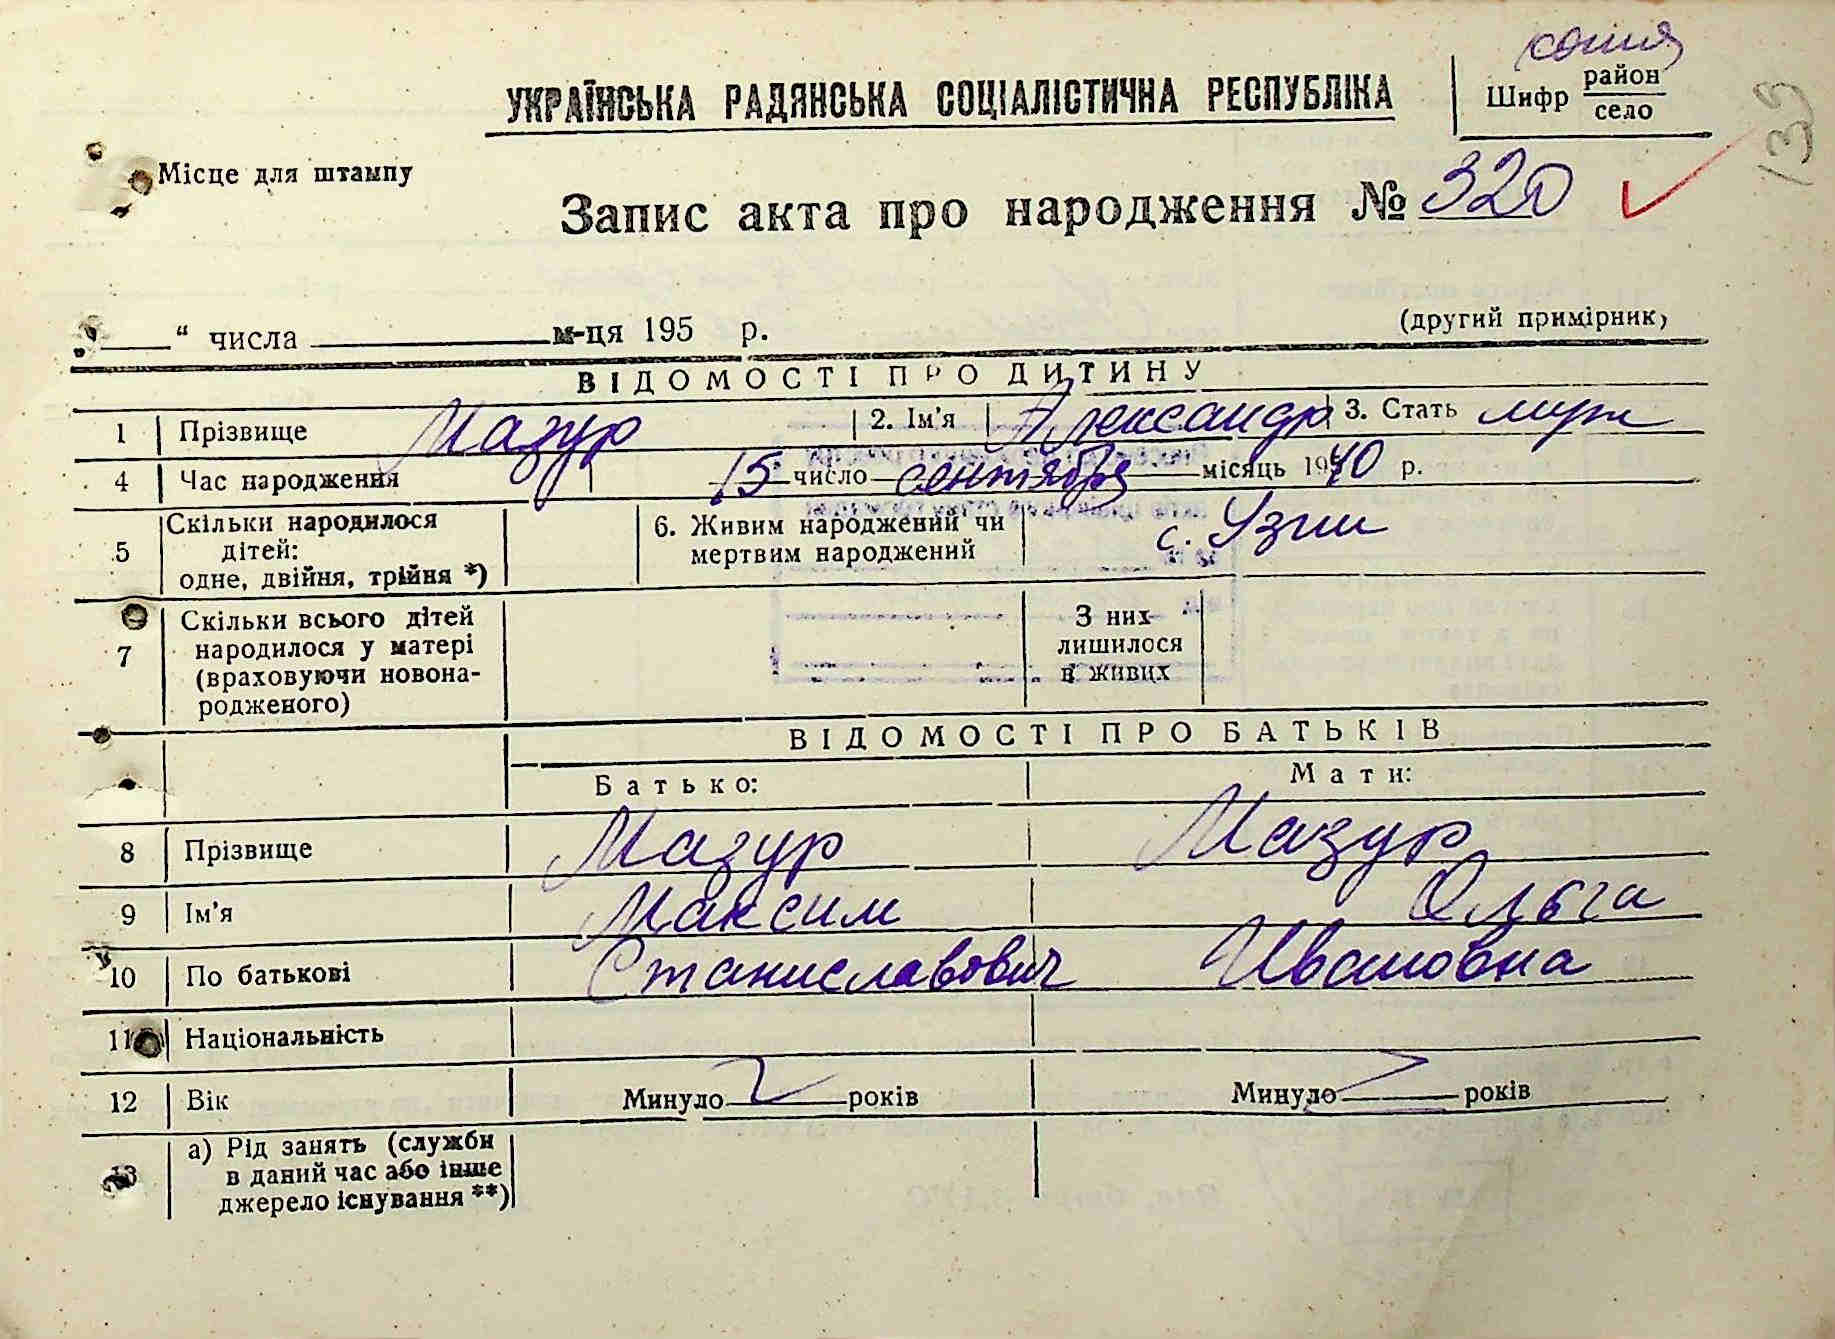 копия
УКРАЇНСЬКА РАДЯНСЬКА СОЦІАЛІСТИЧНА РЕСПУБЛІКА
Шифр район
село
139
Місце для штампу
Запис акта про народження № 320
“ числа м-ця 195 р.
(другий примірник)
ВІДОМОСТІ ПРО ДИТИНУ
1 Прізвище Мазур 2. Ім'я Александр 3. Стать муж
4 Час народження 15 число сентября місяць 1940 р.
5 Скільки народилося дітей: одне, двійня, трійня *) 6. Живим народжений чи мертвим народжений с. Узин
7 Скільки всього дітей народилося у матері (враховуючи новонародженого) З них лишилося в живих
ВІДОМОСТІ ПРО БАТЬКІВ
Батько: Мати:
8 Прізвище Мазур Мазур
9 Ім'я Максим Ольга
10 По батькові Станиславович Ивановна
11 Національність
12 Вік Минуло років Минуло років
13 а) Рід занять (служби в даний час або інше джерело існування **)